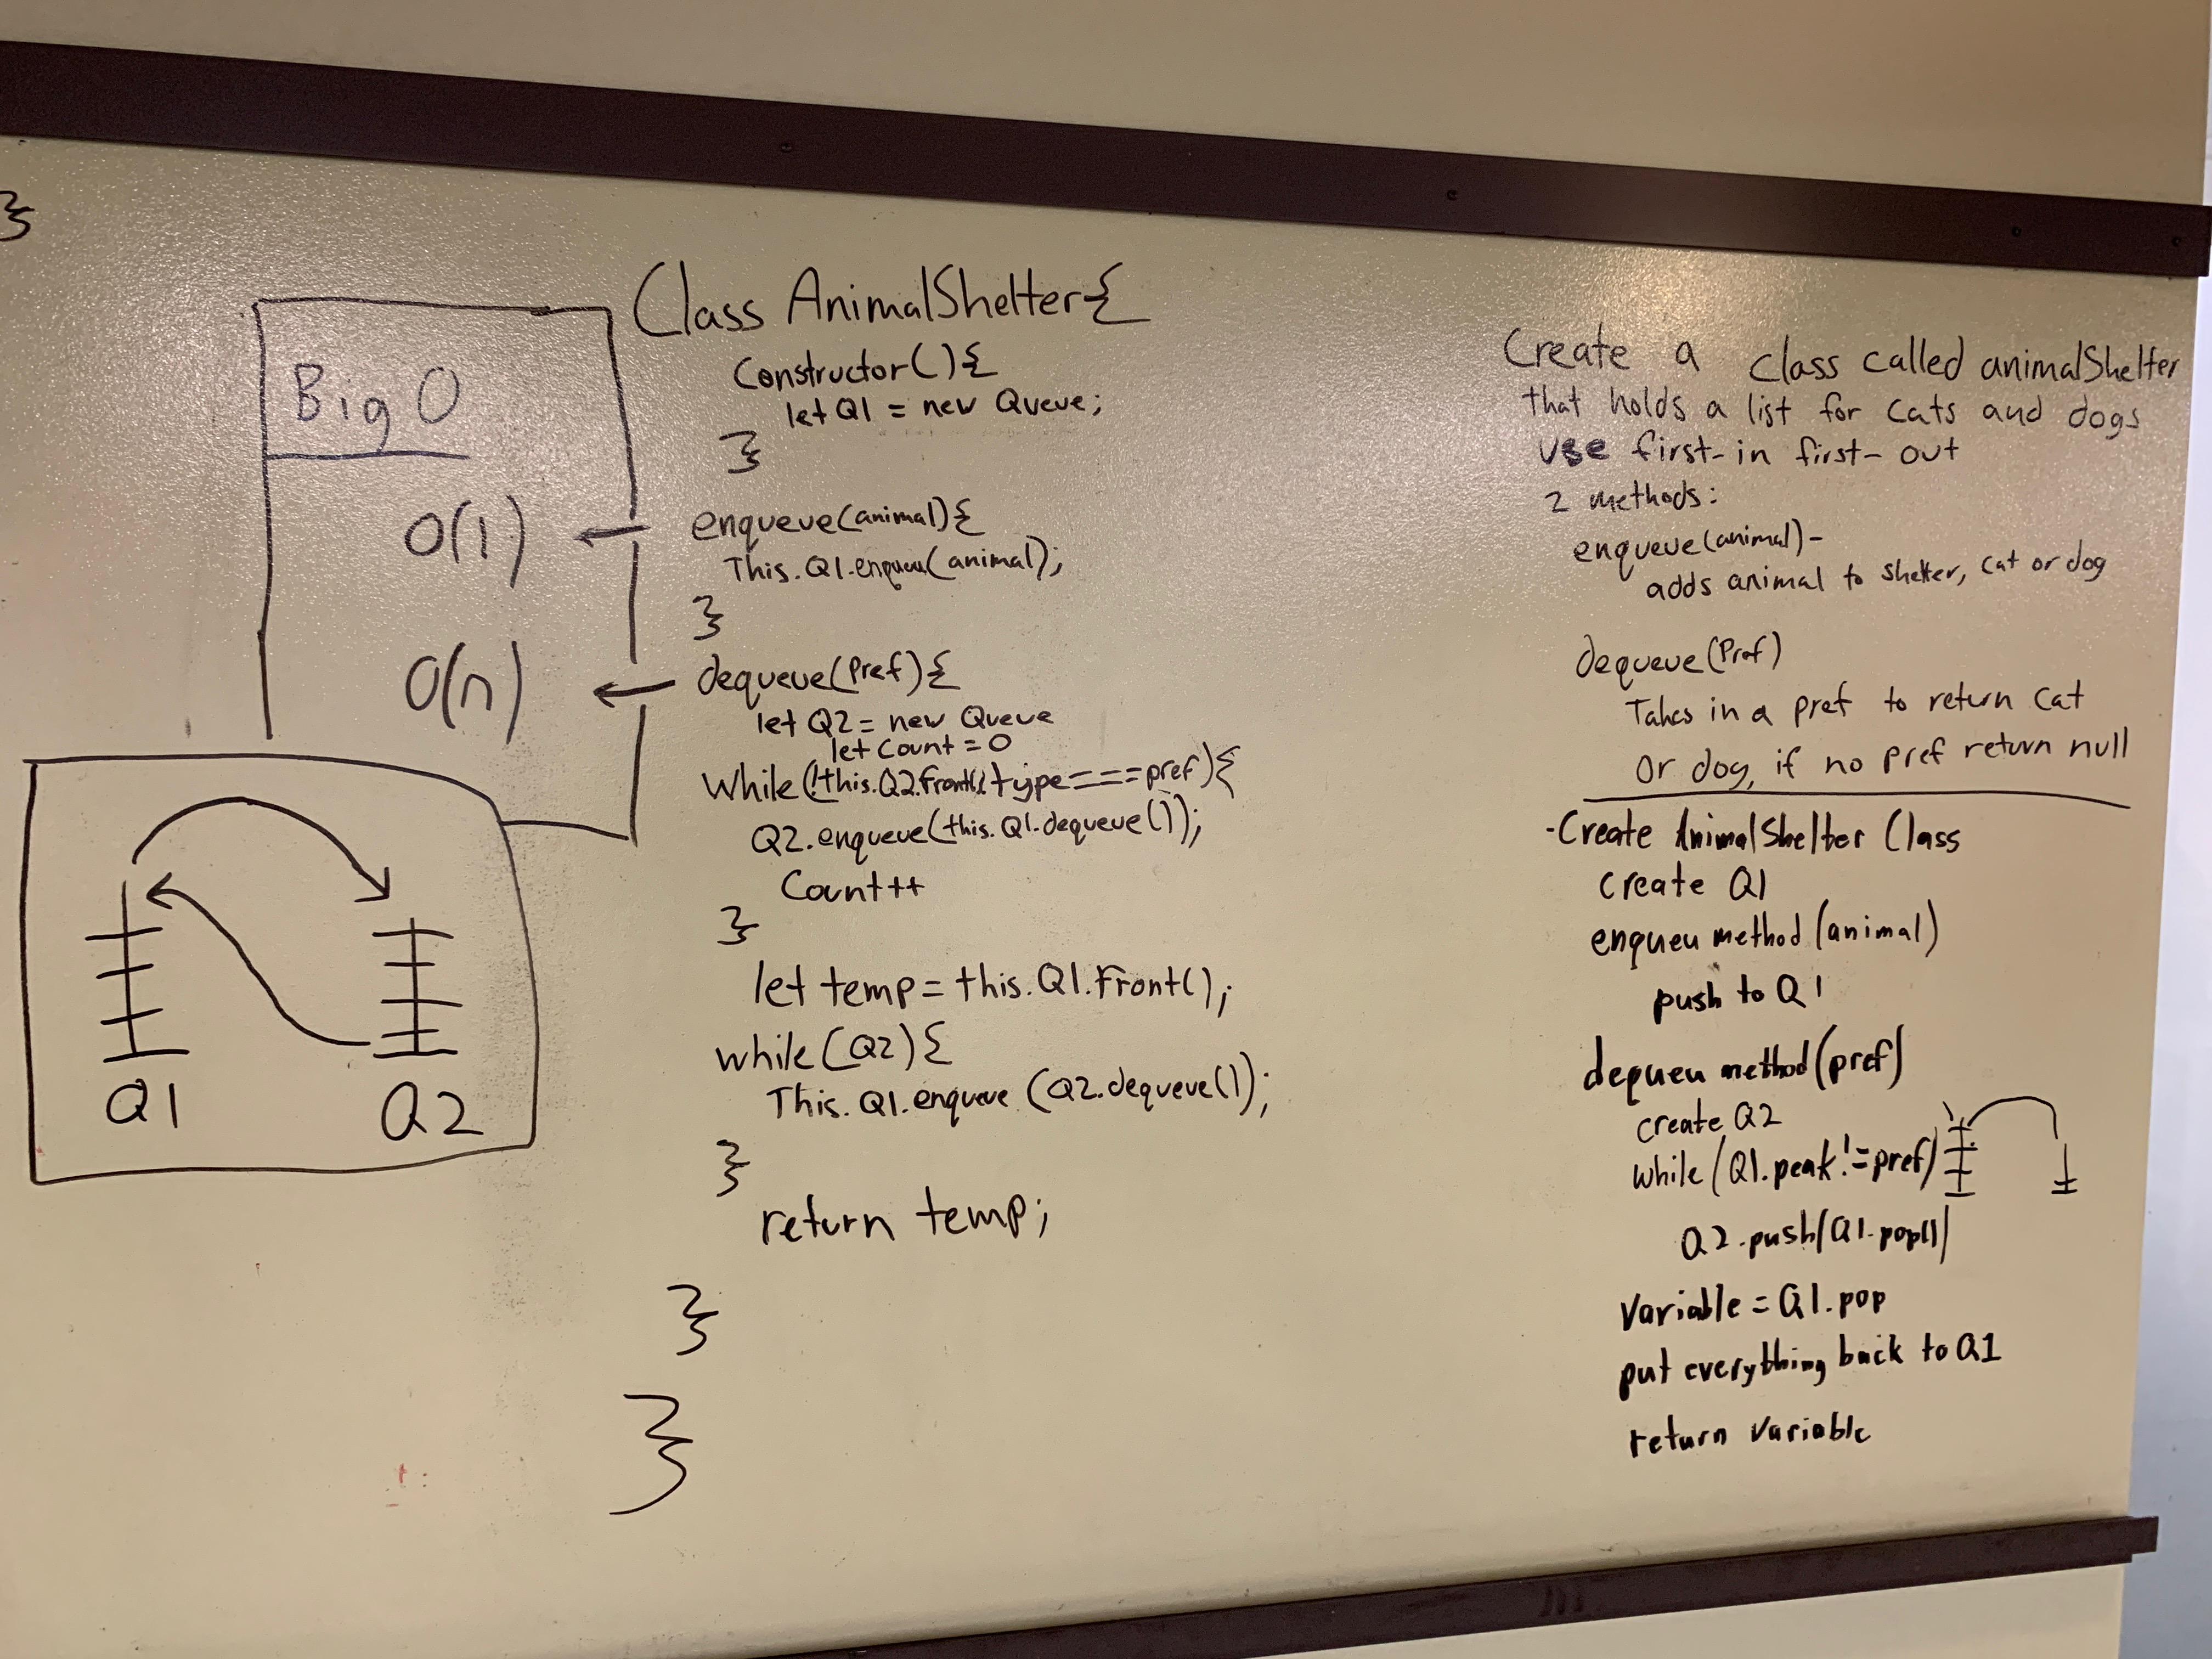 }
Big O
O(1)
O(n)
Q1 Q2
Class AnimalShelter{
Constructor(){
let Q1 = new Queue;
}
enqueue(animal){
This.Q1.enqueu(animal);
}
dequeue(Pref){
let Q2 = new Queue
let Count = 0
While(!this.Q2.Front().type===pref){
Q2.enqueue(this.Q1.dequeue());
Count++
}
let temp = this.Q1.Front();
while(Q2){
This.Q1.enqueue(Q2.dequeue());
}
return temp;
}
}
Create a class called animalShelter
that holds a list for cats and dogs
use first-in first-out
2 methods:
enqueue(animal)-
adds animal to shelter, cat or dog
dequeue(Pref)
Takes in a pref to return cat
Or dog, if no pref return null
-Create AnimalShelter Class
create Q1
enqueu method (animal)
push to Q1
dequeu method (pref)
create Q2
while (Q1.peak != pref)
Q2.push(Q1.pop())
Variable = Q1.pop
put everything back to Q1
return variable